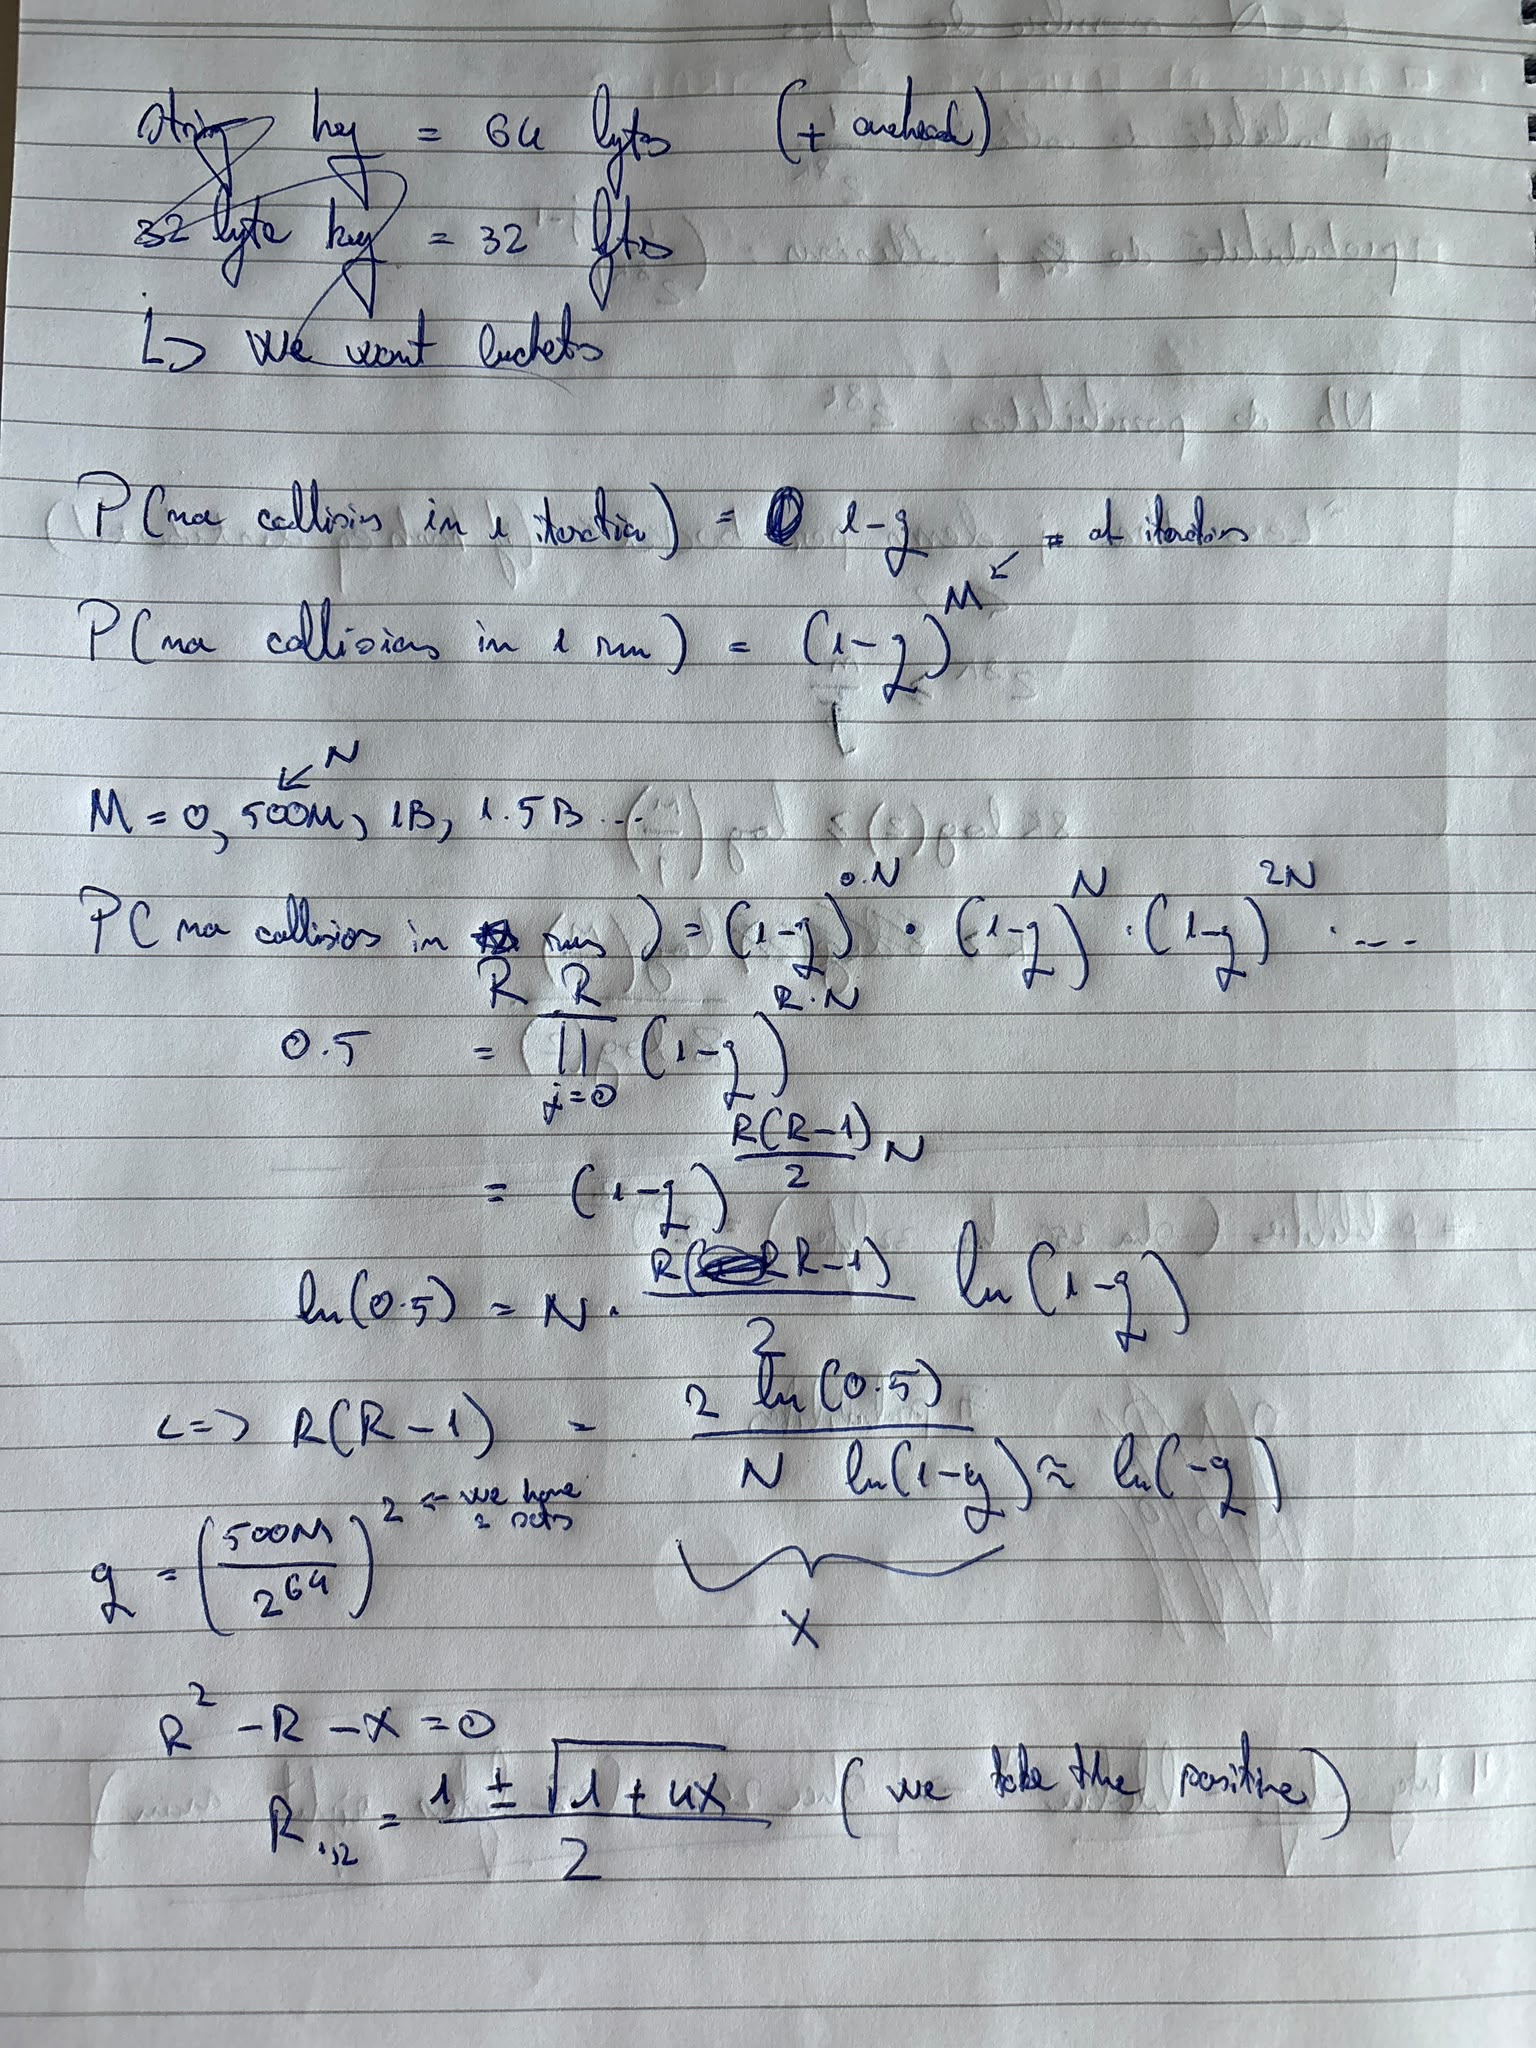 string key = 64 bytes (+ overhead)
32 byte key = 32 bytes
↳ We want buckets
P(no collision in 1 iteration) = 1-q
# of iterations
P(no collisions in 1 run) = (1-q)^M
N
M = 0, 500M, 1B, 1.5B...
P(no collision in R runs) = (1-q)^{0.N} · (1-q)^N · (1-q)^{2N} · ...
0.5 = ∏_{j=0}^{R} (1-q)^{R·N}
= (1-q)^{R(R-1)/2 N}
ln(0.5) = N · R(R-1)/2 ln(1-q)
<=> R(R-1) = 2 ln(0.5) / N ln(1-q) ≈ ln(-q)
q = (500M/2^64)^2 ← we have 2 sets
X
R^2 - R - X = 0
R_{1,2} = (1 ± √(1+4X)) / 2 (we take the positive)